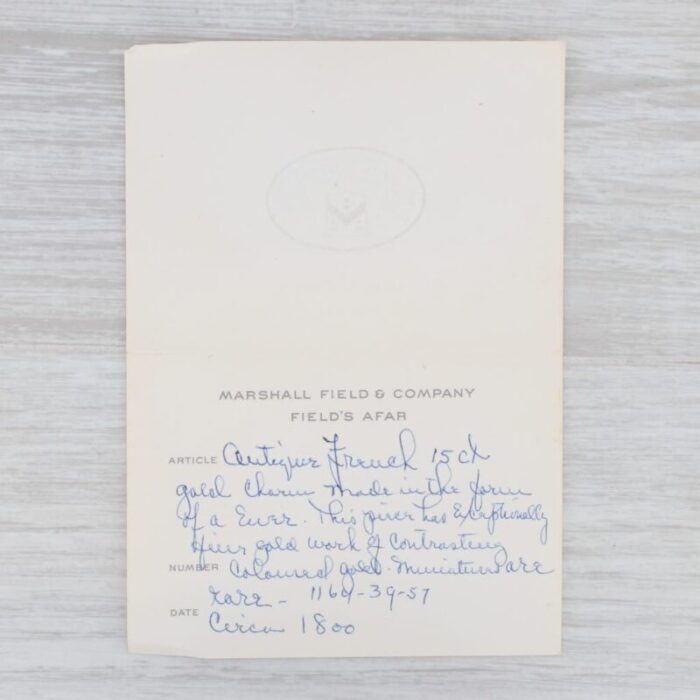 MARSHALL FIELD & COMPANY
FIELD'S AFAR
ARTICLE Antique French 15 ct
gold Charm made in the form
of a Ewer. This piece has Exceptionally
fine gold work of Contrasting
NUMBER Coloured gold. Miniatures are
rare - 1164-39-57
DATE Circa 1800